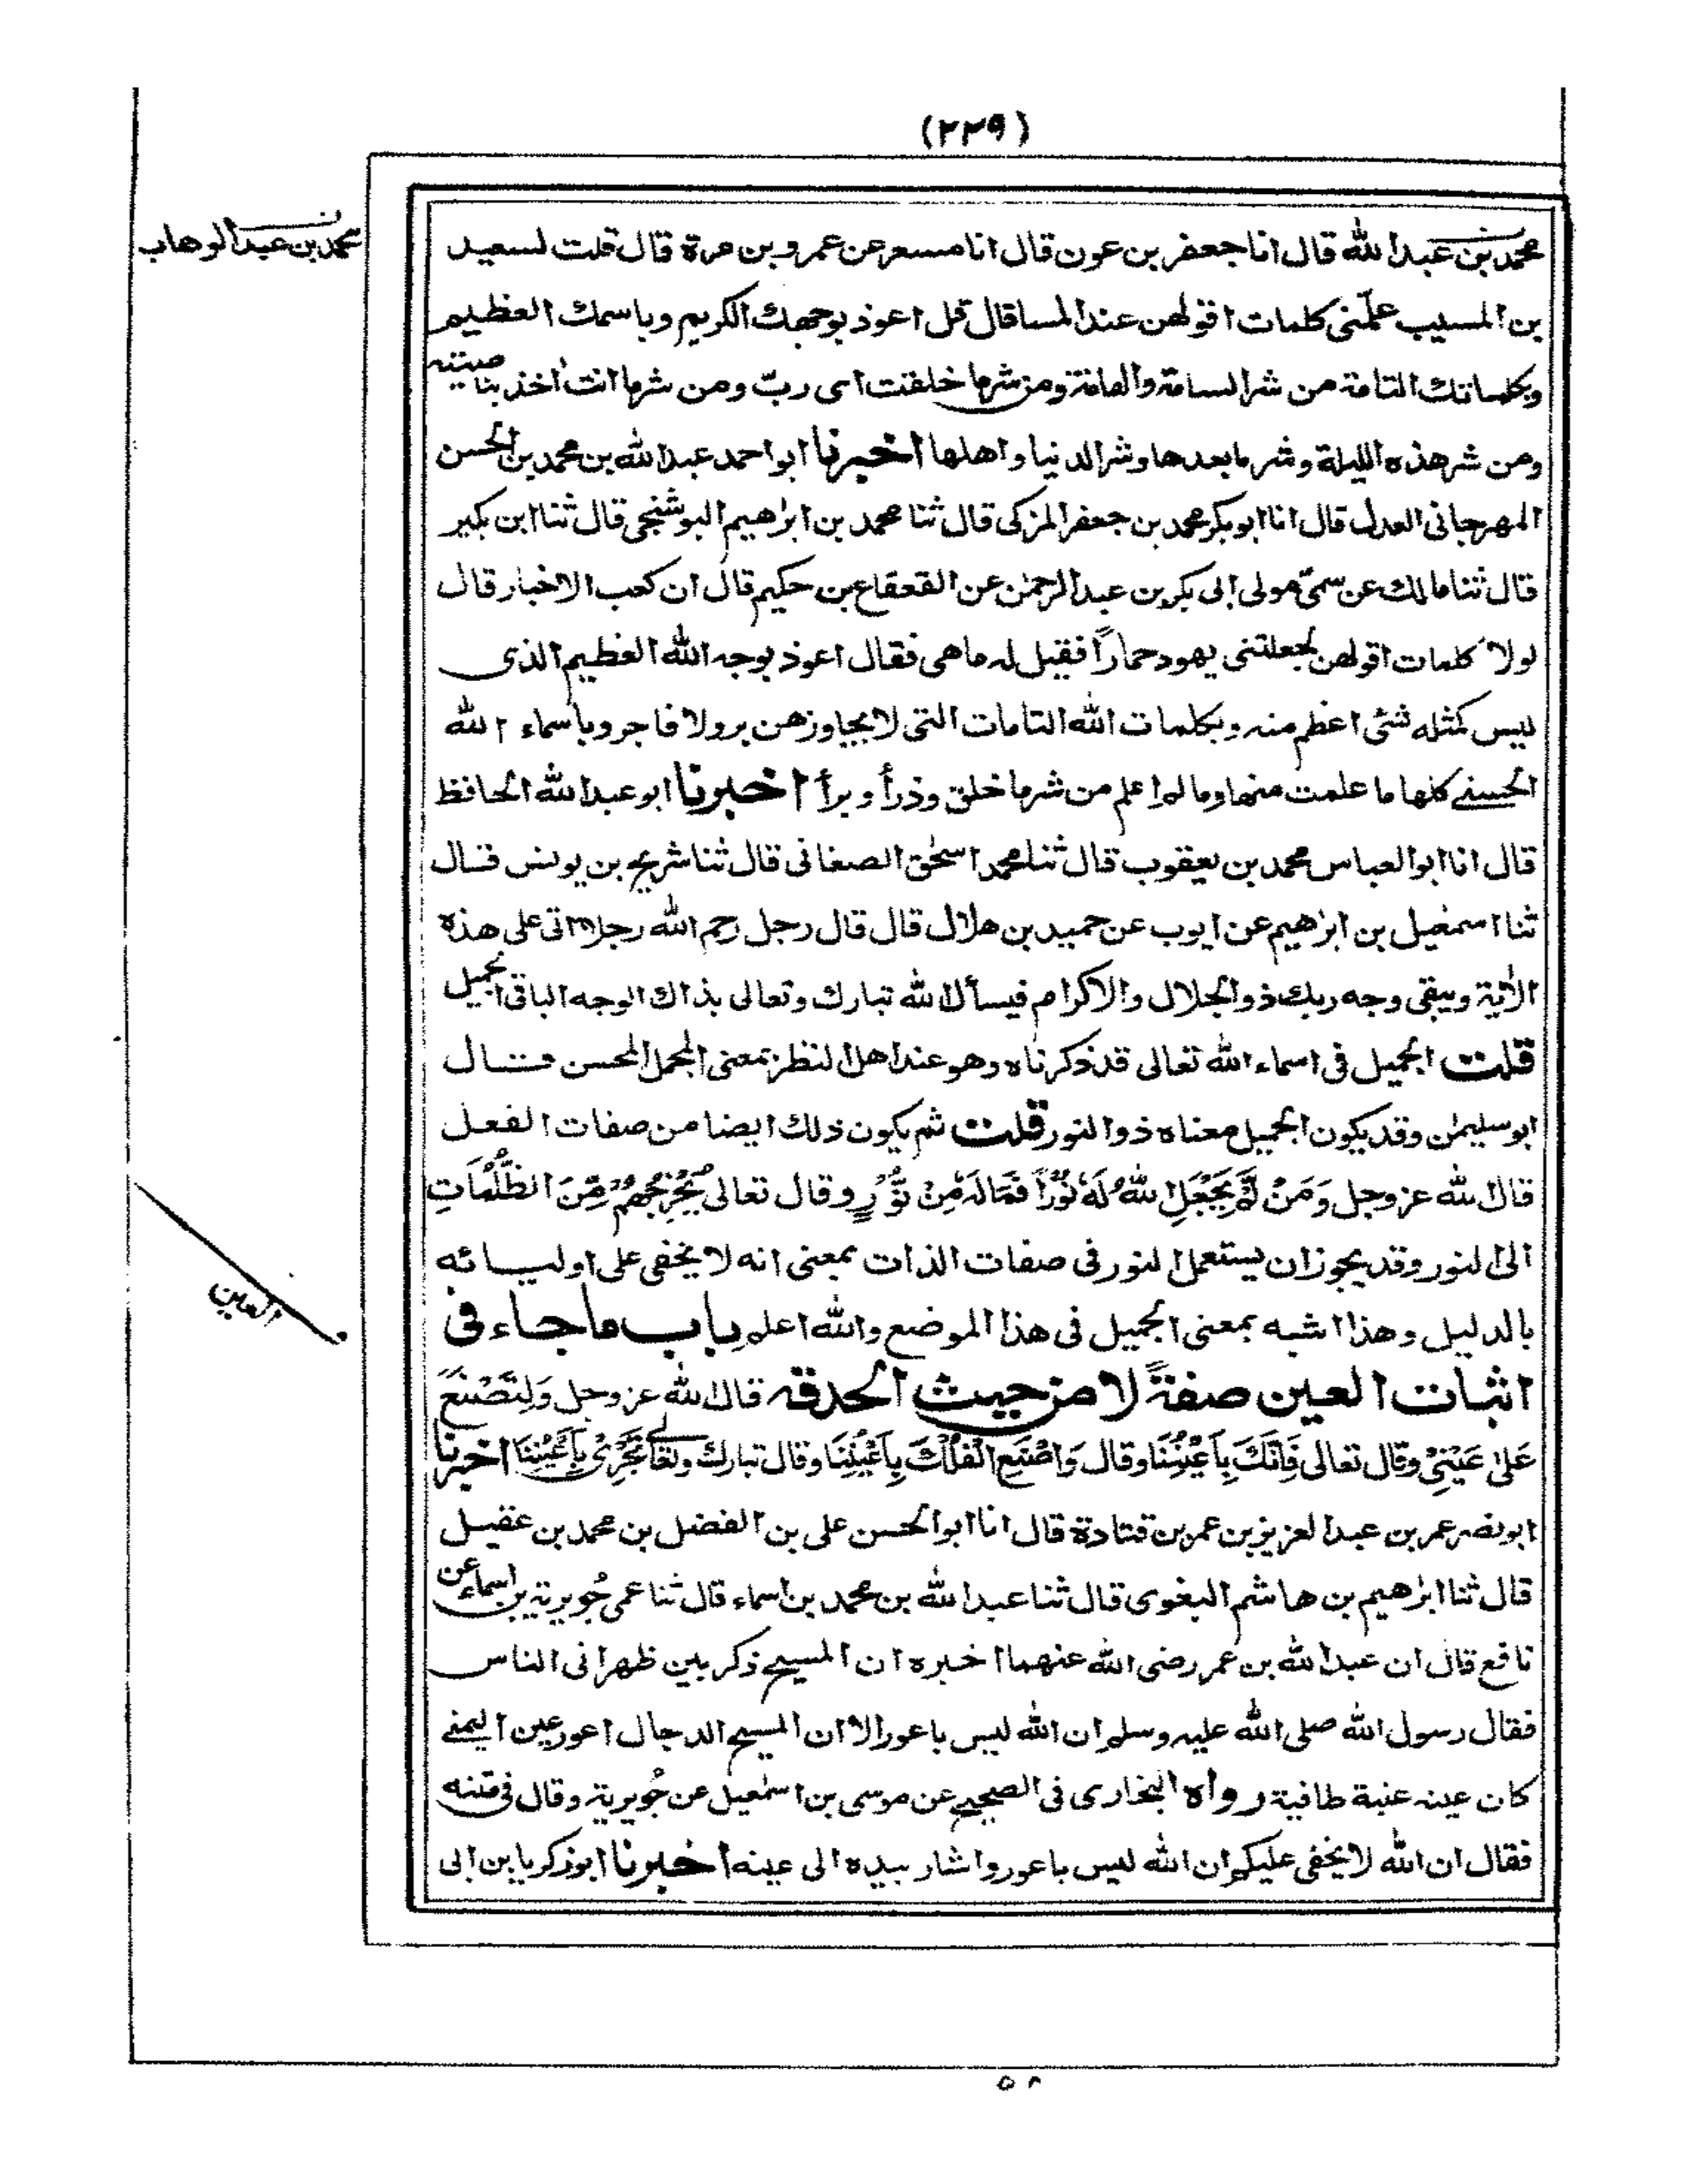 (٢٢٩)
محمد بن عبد الوهاب
محمد بن عبد الله قال انا جعفر بن عون قال انا مسعر عن عمرو بن مرة قال قلت لسعيد
بن المسيب علّمنى كلمات اقولهن عند المسا قال قل اعوذ بوجهك الكريم وباسمك العظيم
وبكلماتك التامة من شر السامة والعامة ومن شر ما خلقت اى ربّ ومن شر ما انت اٰخذ بناصيته
ومن شر هذه الليلة وشر ما بعدها وشر الدنيا واهلها اخبرنا ابو احمد عبد الله بن محمد بن الحسن
المهرجانى العدل قال انا ابو بكر محمد بن جعفر المزكى قال ثنا محمد بن ابرٰهيم البوشنجى قال ثنا ابن بكير
قال ثنا مالك عن سمىّ مولى ابى بكر بن عبد الرحمٰن عن القعقاع بن حكيم قال ان كعب الاخبار قال
لولا كلمات اقولهن لجعلتنى يهود حماراً فقيل له ما هى فقال اعوذ بوجه الله العظيم الذى
ليس كمثله شئ اعظم منه وبكلمات الله التامات التى لا يجاوزهن بر ولا فاجر وباسماء الله
الحسنے كلها ما علمت منها وما لم اعلم من شر ما خلق وذرأ وبرأ اخبرنا ابو عبد الله الحافظ
قال انا ابو العباس محمد بن يعقوب قال ثنا محمد اسحٰق الصغانى قال ثنا شريح بن يونس قال
ثنا اسمٰعيل بن ابرٰهيم عن ايوب عن حميد بن هلال قال قال رجل رحم الله رجلا اتى على هذه
الاٰية ويبقى وجه ربك ذو الجلال والاكرام فيسأل الله تبارك وتعالى بذاك الوجه الباقى الجميل
قلت الجميل فى اسماء الله تعالى قد ذكرناه وهو عند اهل النظر بمعنى المجمل المحسن قال
ابو سليمٰن وقد يكون الجميل معناه ذو النور قلت ثم يكون ذلك ايضا من صفات الفعل
قال الله عز وجل وَمَنْ لَّمْ يَجْعَلِ اللهُ لَهٗ نُوْرًا فَمَا لَهٗ مِنْ نُّوْرٍ وقال تعالى يُخْرِجُهُمْ مِّنَ الظُّلُمَاتِ
الى النور وقد يجوز ان يستعمل النور فى صفات الذات بمعنى انه لا يخفى على اوليائه
بالدليل وهذا اشبه بمعنى الجميل فى هذا الموضع والله اعلم باب ما جاء فى
العين
اثبات العين صفةً لا من حيث الحدقه قال الله عز وجل وَلِتُصْنَعَ
عَلىٰ عَيْنِىْ وقال تعالى فَاِنَّكَ بِاَعْيُنِنَا وقال وَاصْنَعِ الْفُلْكَ بِاَعْيُنِنَا وقال تبارك وتعالى تَجْرِىْ بِاَعْيُنِنَا اخبرنا
ابو نصر عمر بن عبد العزيز بن عمر بن قتادة قال انا ابو الحسن على بن الفضل بن محمد بن عقيل
قال ثنا ابرٰهيم بن هاشم البغوى قال ثنا عبد الله بن محمد بن اسماء قال ثنا عمى جُويرية بن اسماء عن
نافع قال ان عبد الله بن عمر رضى الله عنهما اخبره ان المسيح ذكر بين ظهرانى الناس
فقال رسول الله صلى الله عليه وسلم ان الله ليس باعور الا ان المسيح الدجال اعور عين اليمنے
كان عينه عنبة طافية رواه البخارى فى الصحيح عن موسى بن اسمٰعيل عن جُويرية وقال فى متنه
فقال ان الله لا يخفى عليكم ان الله ليس باعور واشار بيده الى عينه اخبرنا ابو زكريا بن ابى
٥٨